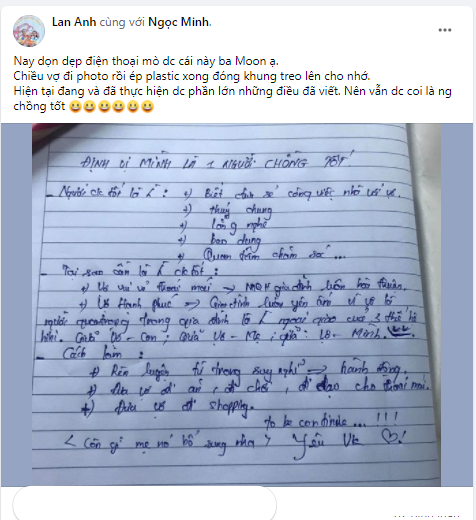 Lan Anh cùng với Ngọc Minh.
Nay dọn dẹp điện thoại mò dc cái này ba Moon ạ.
Chiều vợ đi photo rồi ép plastic xong đóng khung treo lên cho nhớ.
Hiện tại đang và đã thực hiện dc phần lớn những điều đã viết. Nên vẫn dc coi là ng
chồng tốt 😀😀😀😀😀😀
ĐỊNH VỊ MÌNH LÀ 1 NGƯỜI CHỒNG TỐT
- Người ck tốt là : +) Biết chia sẻ công việc nhà với vợ.
+) thuỷ chung
+) lắng nghe
+) bao dung
+) Quan tâm chăm sóc ...
- Tại sao cần là ck tốt :
+) Vợ vui vẻ thoải mái -> gia đình luôn hoà thuận.
+) Vợ Hạnh Phúc => Gia đình luôn yên ấm vì vợ là
trong gia đình là ngoại giao của 3 thế hệ
Giữa Vợ - Con ; Giữa Vợ - Mẹ ; giữa Vợ - Mình.
- Cách làm :
+) Rèn luyện từ trong suy nghĩ => hành động.
+) Đưa vợ đi ăn, đi chơi, đi dạo cho thoải mái.
+) Đưa vợ đi shopping.
to be continue... !!!
< Còn gì mẹ nó bổ sung nha > Yêu Vk ♡!